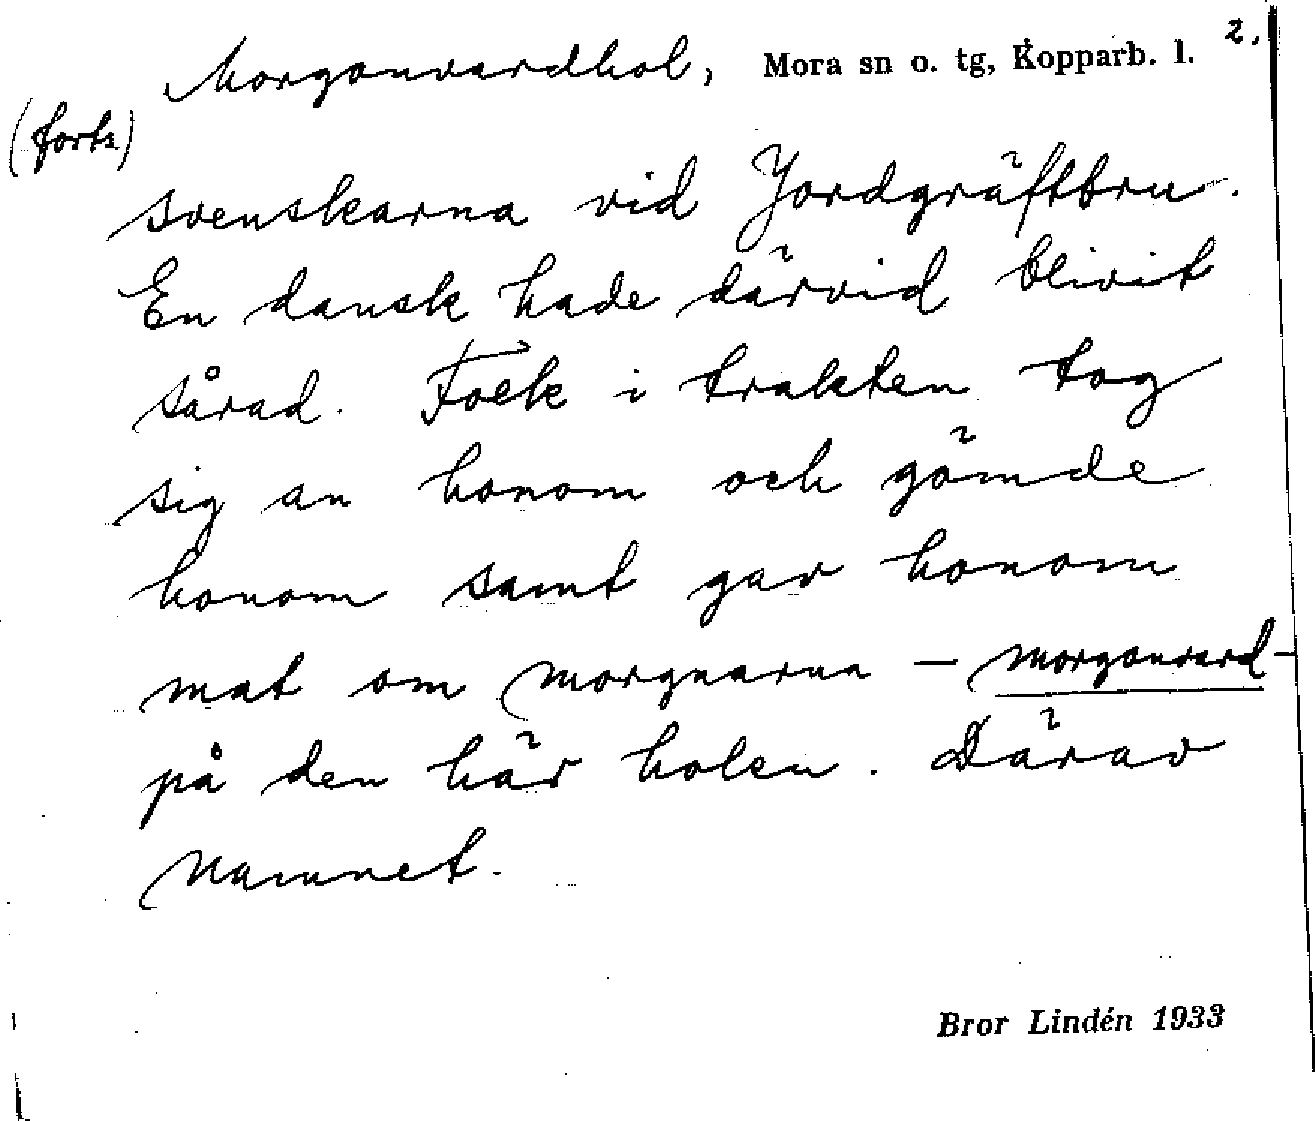 Morgonvardhol, Mora sn o. tg, Kopparb. l. 2.
(forts)
svenskarna vid Jordgräftbru.
En dansk hade därvid blivit
sårad. Folk i trakten tog
sig an honom och gömde
honom samt gav honom
mat om morgnarna – morgonvard –
på den här holen. Därav
namnet.
Bror Lindén 1933